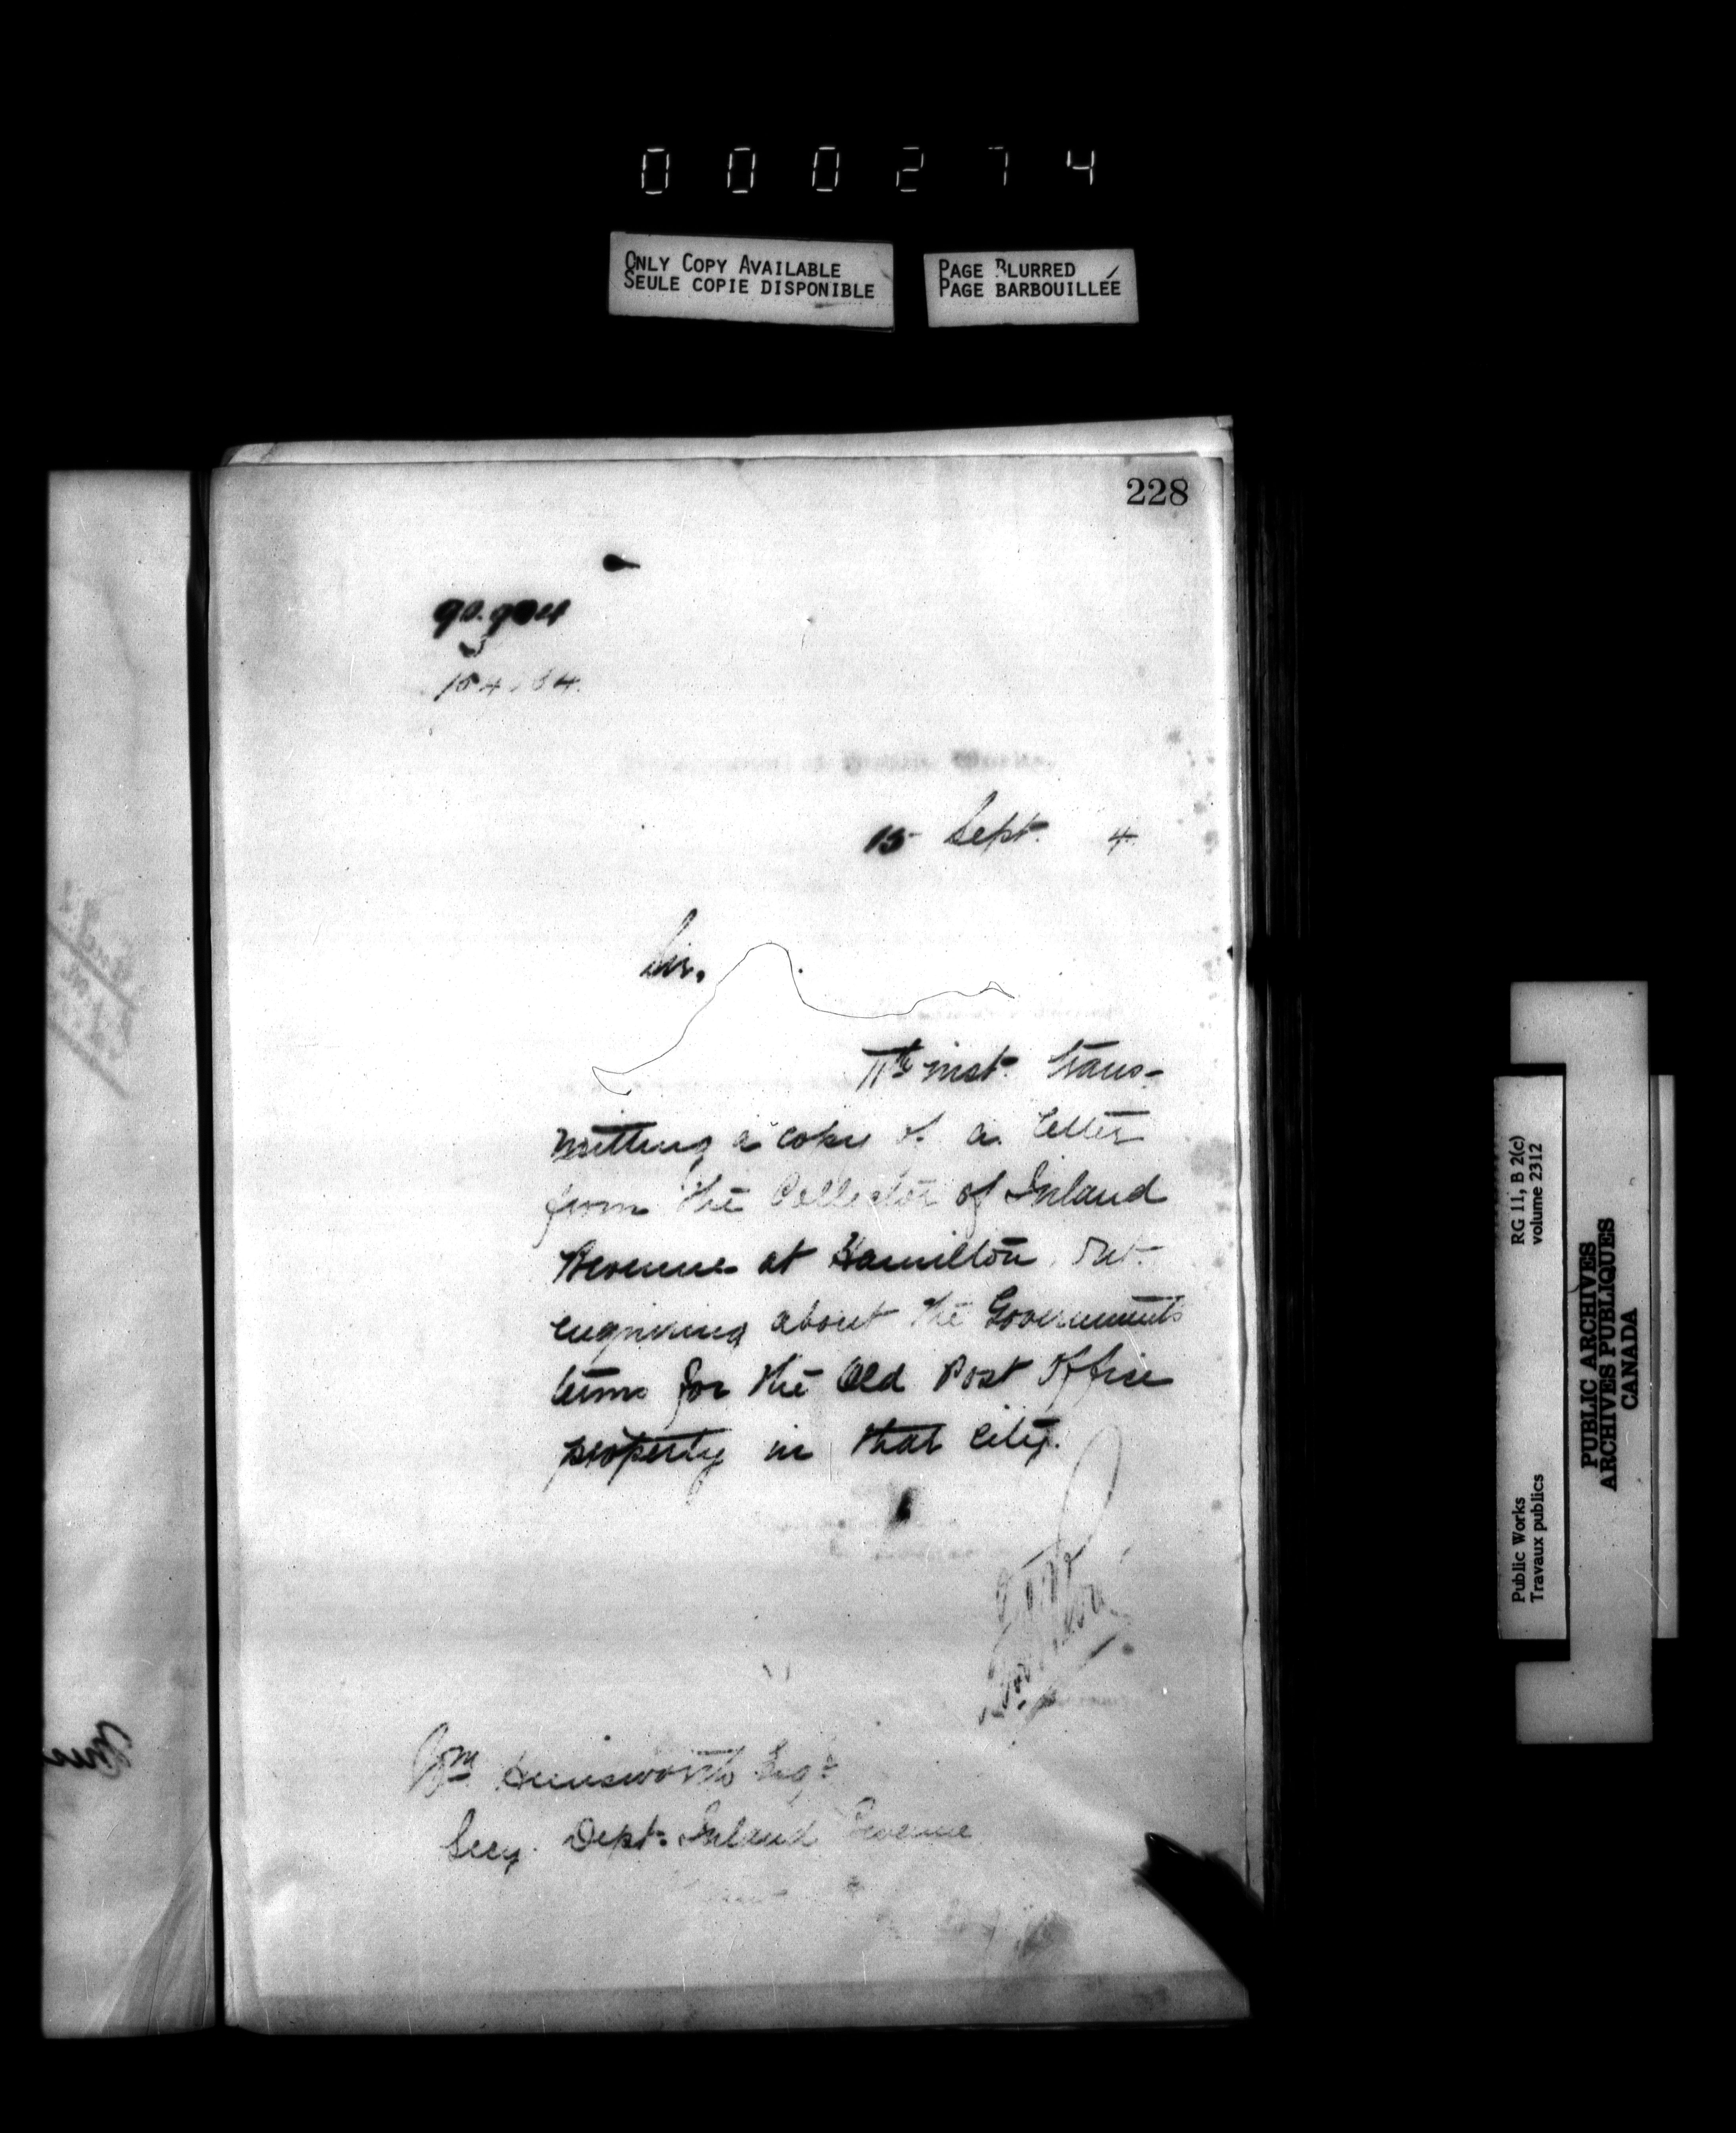 000274
ONLY COPY AVAILABLE
SEULE COPIE DISPONIBLE
PAGE BLURRED
PAGE BARBOUILLÉE
228
15 Sept. 4
Sir.
11th inst. trans-
mitting a copy of a letter
from the Collector of Inland
Revenue at Hamilton, Ont.
enquiring about the Governments
terms for the Old Post Office
property in that city.
Wm Himsworth Esqr
Secy. Dept. Inland Revenue
RG 11, B 2(c)
volume 2312
Public Works
Travaux publics
PUBLIC ARCHIVES
ARCHIVES PUBLIQUES
CANADA